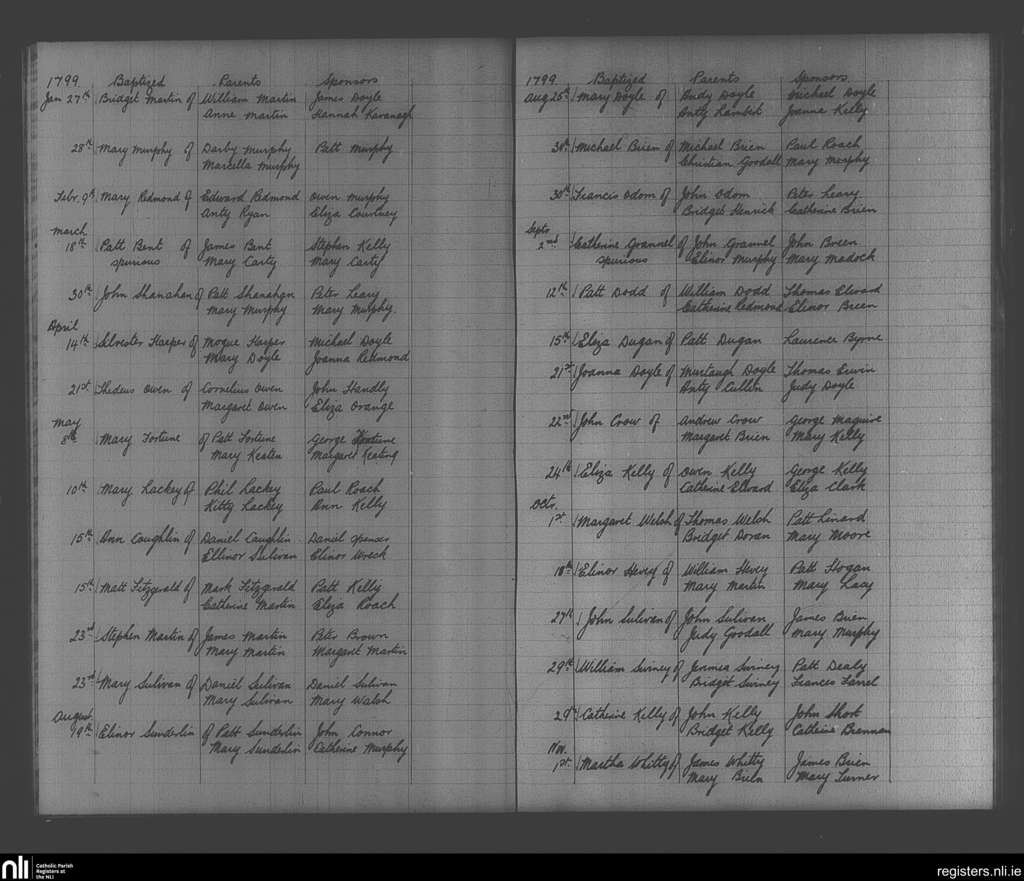 1799 Baptized Parents Sponsors
Jan 27th Bridget Martin of William Martin James Doyle
Anne Martin Hannah Kavanagh
28th Mary Murphy of Darby Murphy Patt Murphy
Marcella Murphy
Febr. 9th Mary Redmond of Edward Redmond Owen Murphy
Anty Ryan Eliza Courtney
March
18th Patt Bent of James Bent Stephen Kelly
spurious Mary Carty Mary Carty
30th John Shanahan of Patt Shanahan Peter Leary
Mary Murphy Mary Murphy.
April
14th Silvester Harper of Mogue Harper Michael Doyle
Mary Doyle Joanna Redmond
21st Thedeus Owen of Cornelius Owen John Handly
Margaret Owen Eliza Orange
May
8th Mary Fortune of Patt Fortune George Fortune
Mary Keaten Margaret Keating
10th Mary Lackey of Phil Lackey Paul Roach
Kitty Lackey Ann Kelly
15th Ann Caughlin of Daniel Caughlin Daniel Spencer
Ellinor Sulivan Elinor Wreck
15th Matt Fitzgerald of Mark Fitzgerald Patt Kelly
Catherine Martin Eliza Roach
23rd Stephen Martin of James Martin Peter Brown
Mary Martin Margaret Martin
23rd Mary Sulivan of Daniel Sulivan Daniel Sulivan
Mary Sulivan Mary Walsh
August
19th Elinor Sunderlin of Patt Sunderlin John Connor
Mary Sunderlin Catherine Murphy
1799 Baptized Parents Sponsors
Aug 25th Mary Doyle of Andy Doyle Michael Doyle
Anty Lambert Joanna Kelly
30th Michael Brien of Michael Brien Paul Roach
Christian Goodall Mary Murphy
30th Francis Odom of John Odom Peter Leary
Bridget Henrick Catherine Brien
Septr
2nd Catherine Grannel of John Grannel John Breen
spurious Elinor Murphy Mary Madock
12th Patt Dodd of William Dodd Thomas Elward
Catherine Redmond Elinor Breen
15th Eliza Dugan of Patt Dugan Laurence Byrne
21st Joanna Doyle of Murtaugh Doyle Thomas Erwin
Anty Cullin Judy Doyle
22nd John Crow of Andrew Crow George Maguire
Margaret Brien Mary Kelly
24th Eliza Kelly of Owen Kelly George Kelly
Catherine Elward Eliza Clark
Octr.
1st Margaret Welsh of Thomas Welsh Patt Linard
Bridget Doran Mary Moore
18th Elinor Hevey of William Hevey Patt Hogan
Mary Martin Mary Lacy
27th John Sulivan of John Sulivan James Brien
Judy Goodall Mary Murphy
29th William Swiney of Jermea Swiney Patt Dealy
Bridget Swiney Frances Farrel
29th Catherine Kelly of John Kelly John Short
Bridget Kelly Catherine Brannan
Nov.
1st Martha Whitty of James Whitty James Brien
Mary Brien Mary Turner
nli
Catholic Parish
Registers at
the NLI
registers.nli.ie